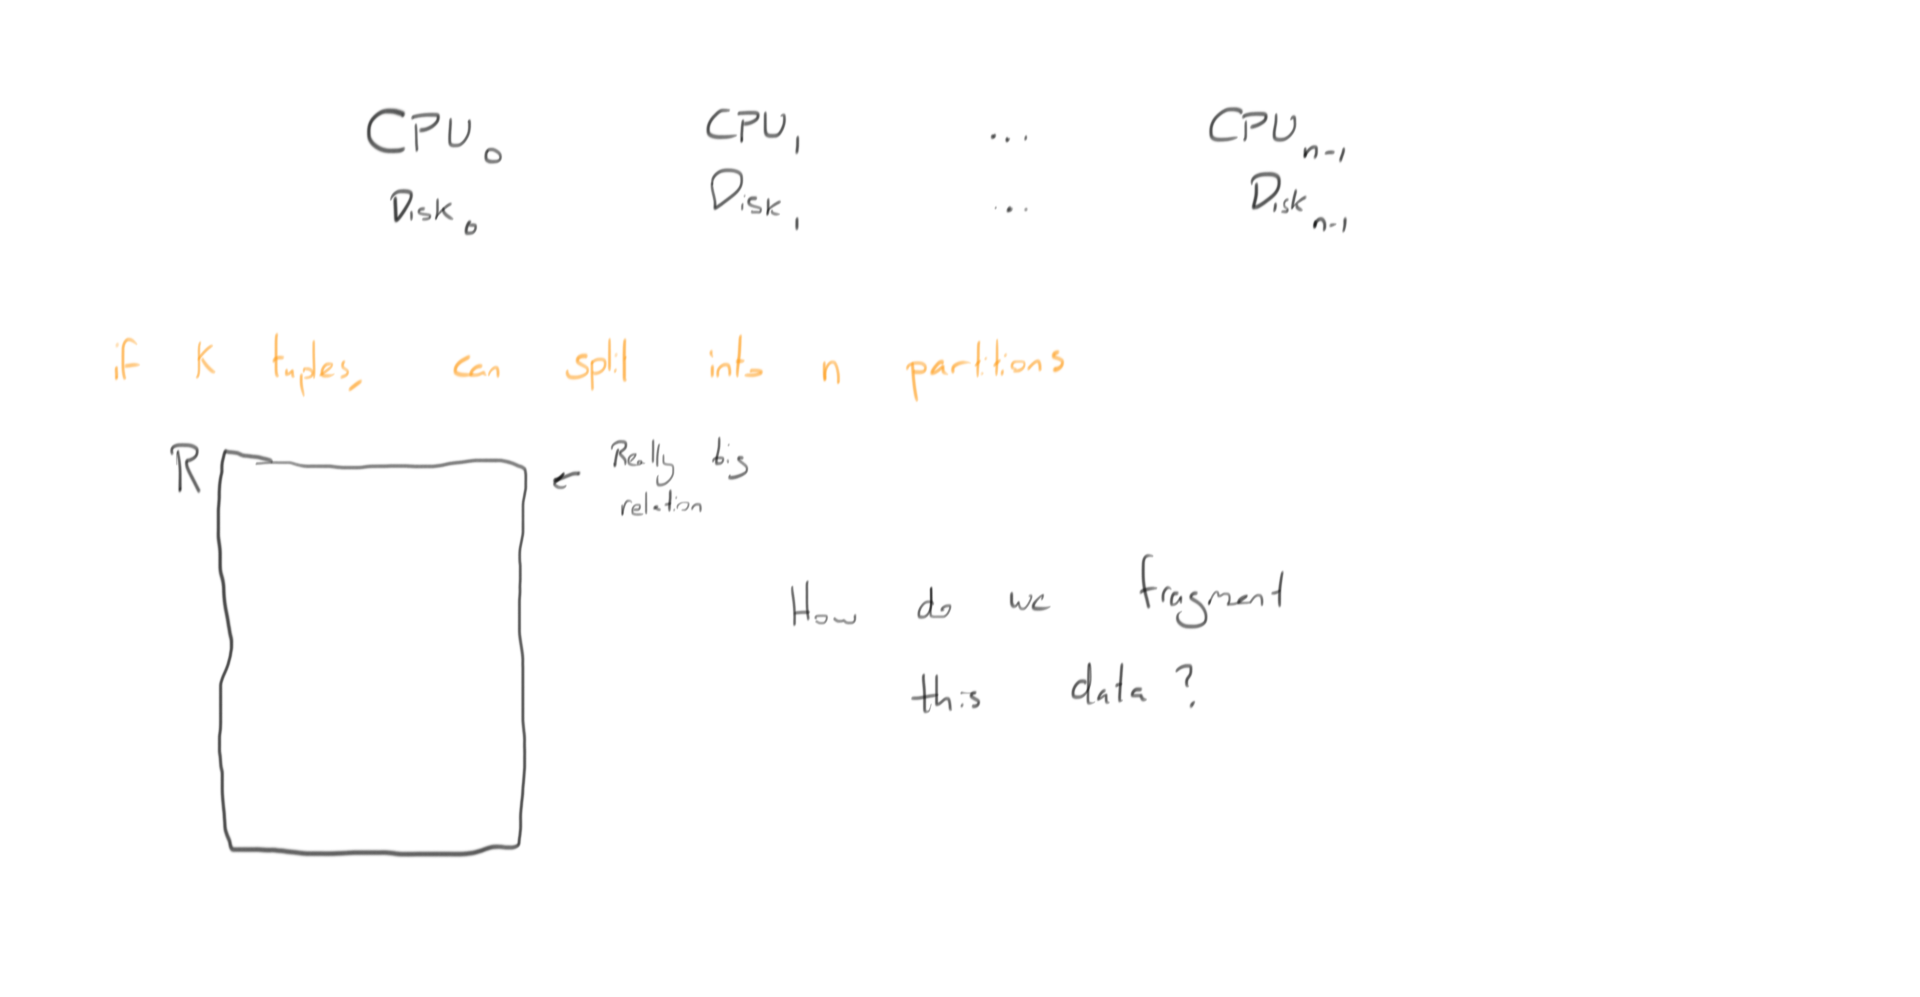 CPU0 CPU1 ... CPUn-1
Disk0 Disk1 ... Diskn-1
if K tuples, can split into n partitions
R ← Really big
relation
How do we fragment
this data?